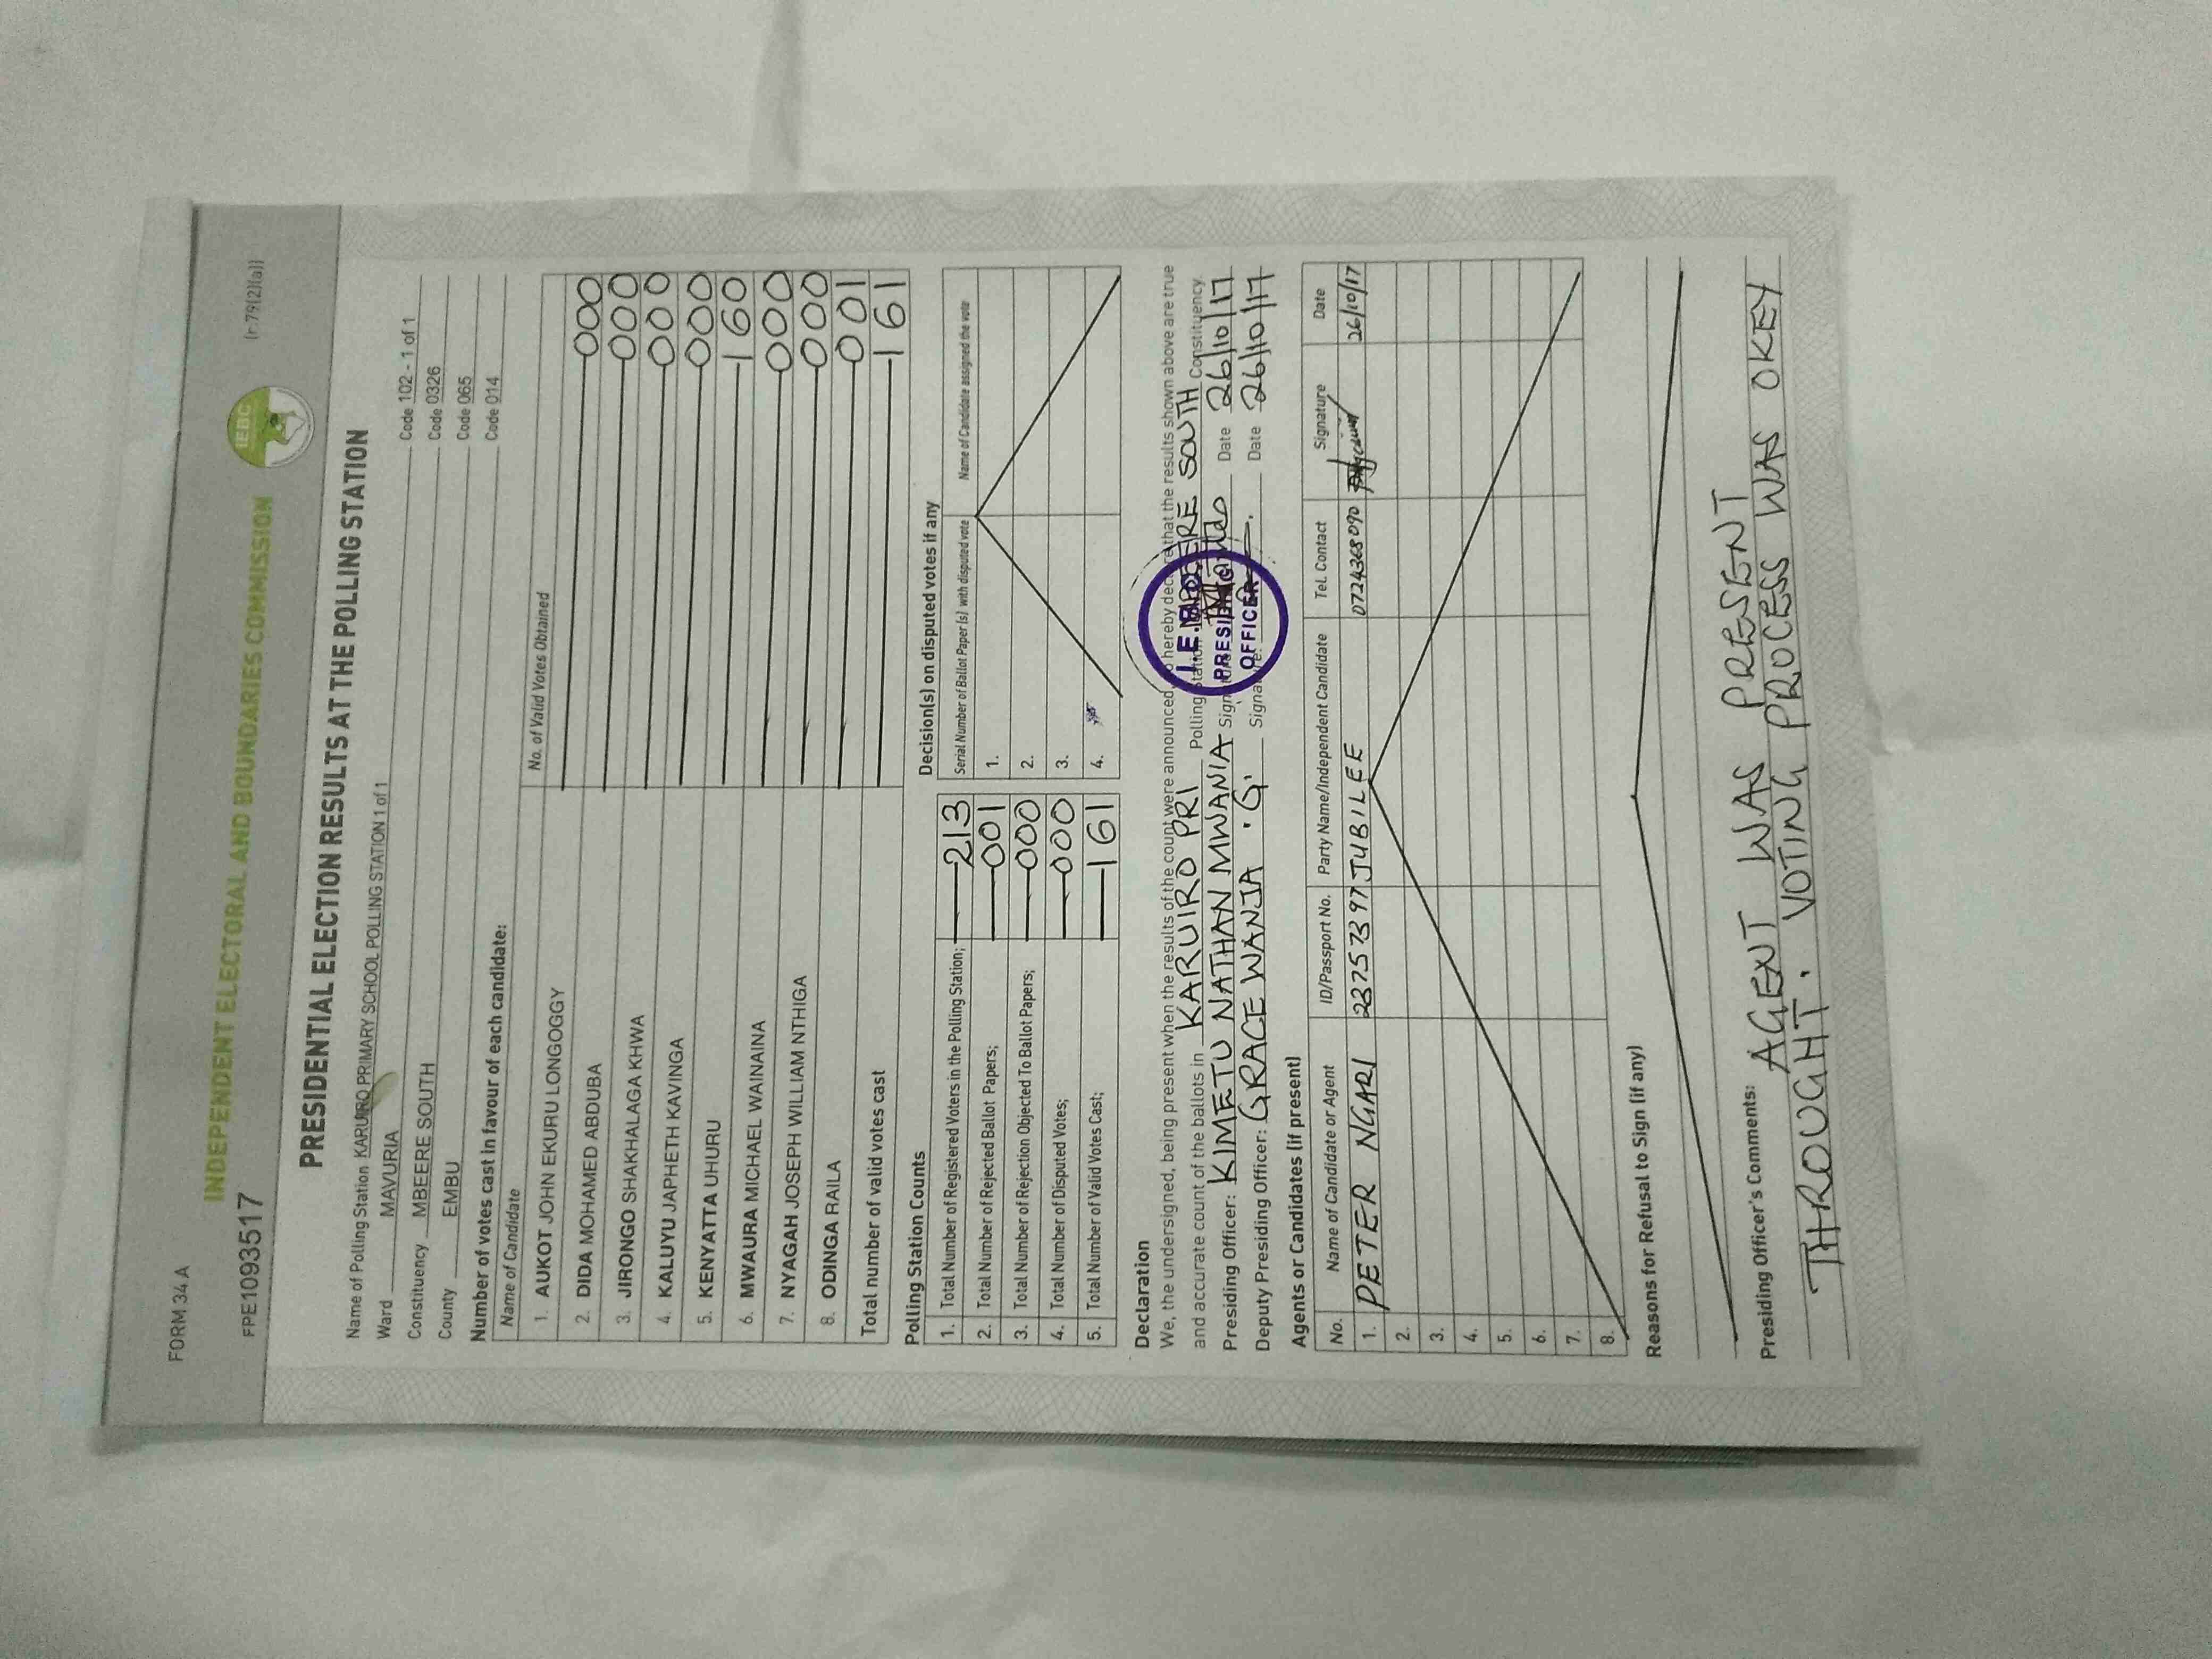 FORM 34 A
(r.79(2)(a))
INDEPENDENT ELECTORAL AND BOUNDARIES COMMISSION
IEBC
FPE1093517
PRESIDENTIAL ELECTION RESULTS AT THE POLLING STATION
Name of Polling Station KARUIRO PRIMARY SCHOOL POLLING STATION 1 of 1 Code 102 - 1 of 1
Ward MAVURIA Code 0326
Constituency MBEERE SOUTH Code 065
County EMBU Code 014
Number of votes cast in favour of each candidate:
Name of Candidate No. of Valid Votes Obtained
1. AUKOT JOHN EKURU LONGOGGY 000
2. DIDA MOHAMED ABDUBA 000
3. JIRONGO SHAKHALAGA KHWA 000
4. KALUYU JAPHETH KAVINGA 000
5. KENYATTA UHURU 160
6. MWAURA MICHAEL WAINAINA 000
7. NYAGAH JOSEPH WILLIAM NTHIGA 000
8. ODINGA RAILA 001
Total number of valid votes cast 161
Polling Station Counts
1. Total Number of Registered Voters in the Polling Station; 213
2. Total Number of Rejected Ballot Papers; 001
3. Total Number of Rejection Objected To Ballot Papers; 000
4. Total Number of Disputed Votes; 000
5. Total Number of Valid Votes Cast; 161
Decision(s) on disputed votes if any
Serial Number of Ballot Paper (s) with disputed vote Name of Candidate assigned the vote
1.
2.
3.
4.
Declaration
We, the undersigned, being present when the results of the count were announced, do hereby declare that the results shown above are true
and accurate count of the ballots in KARUIRO PRI Polling Station MBEERE SOUTH Constituency.
Presiding Officer: KIMETU NATHAN MWANIA Signature Date 26/10/17
Deputy Presiding Officer: GRACE WANJA .G. Signature: Date 26/10/17
I.E.B.C
PRESIDING
OFFICER
Agents or Candidates (if present)
No. Name of Candidate or Agent ID/Passport No. Party Name/Independent Candidate Tel. Contact Signature Date
1. PETER NGARI 23757397 JUBILEE 0724368090 26/10/17
2.
3.
4.
5.
6.
7.
8.
Reasons for Refusal to Sign (if any)
Presiding Officer's Comments: AGENT WAS PRESENT
THROUGHT. VOTING PROCESS WAS OKEY